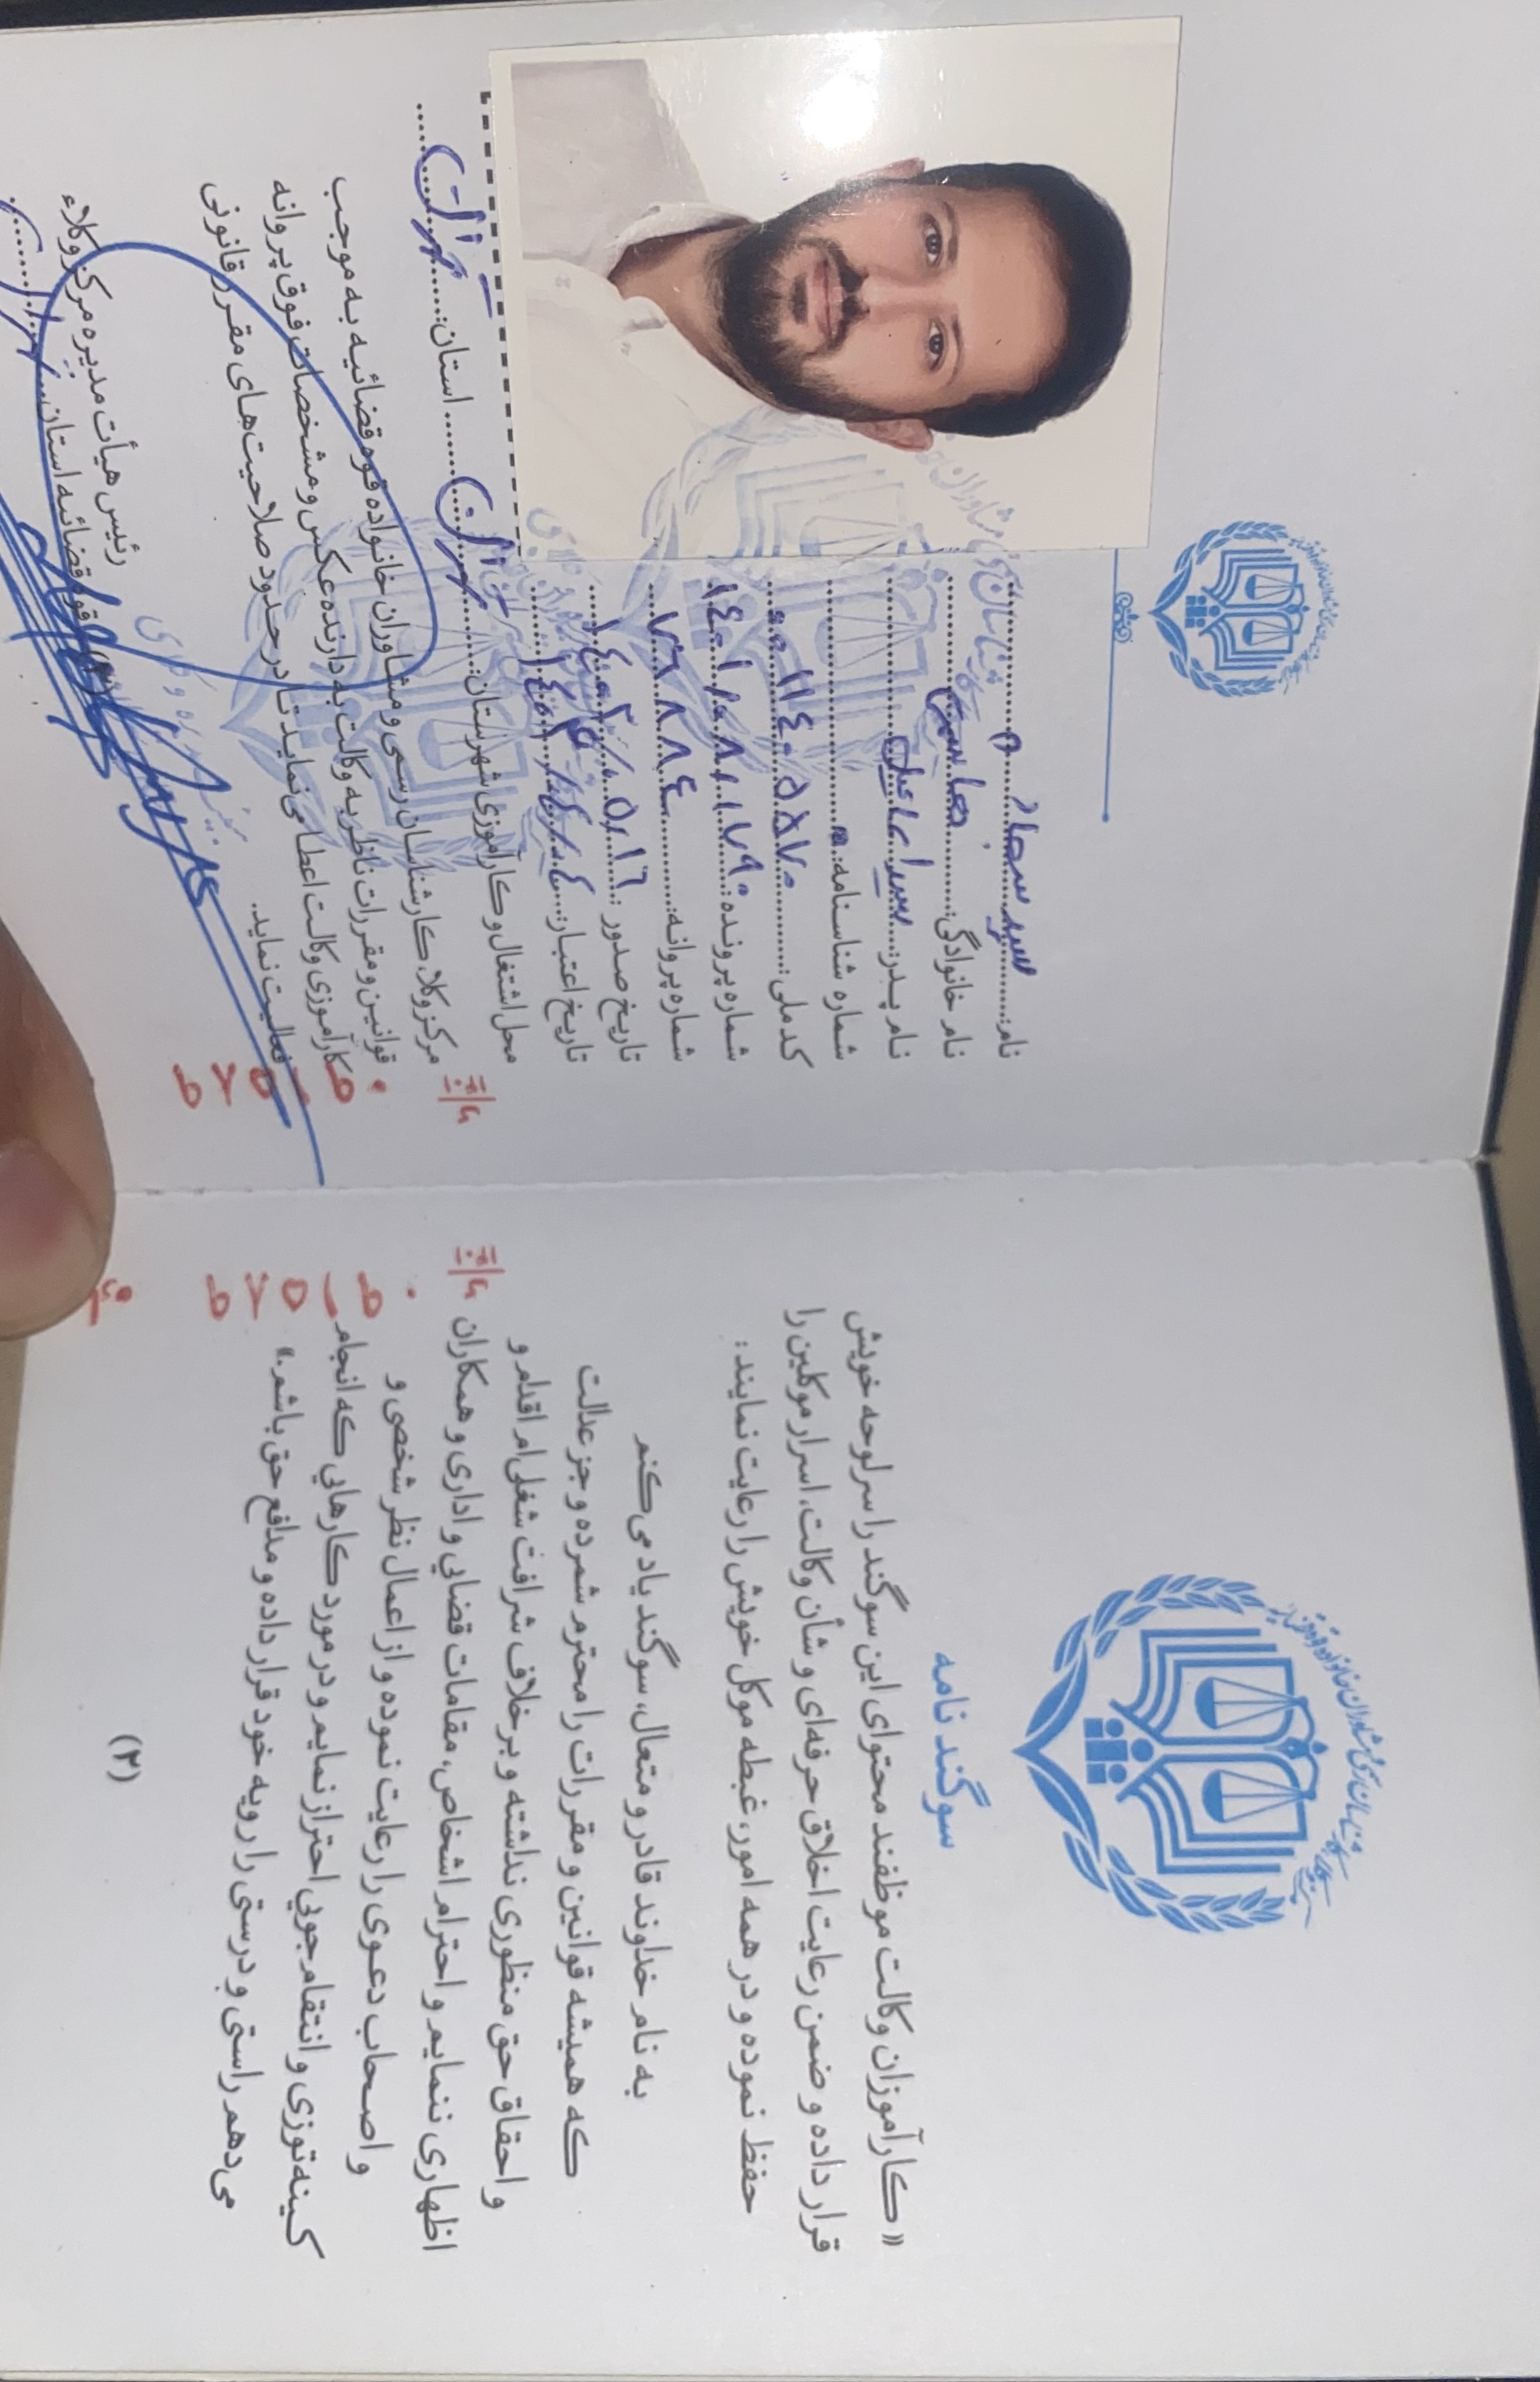 نام: سید سجاد
نام خانوادگی: عباسی
نام پدر: سید اسماعیل
شماره شناسنامه:
کد ملی:
شماره پرونده: ١٤٠١٠٨٠١٧٩٠
شماره پروانه: ٧٦٨٨٤
تاریخ صدور: ١٤٠٢/٠٥/١٦
تاریخ اعتبار:
محل اشتغال و کارآموزی شهرستان: تهران استان: تهران
مرکز وکلا، کارشناسان رسمی و مشاوران خانواده قوه قضائیه به موجب
قوانین و مقررات ناظر به وکالت به دارنده عکس و مشخصات فوق پروانه
کارآموزی وکالت اعطا می نماید تا در حدود صلاحیت های مقرر قانونی
فعالیت نماید.
رئیس هیأت مدیره مرکز وکلاء
قوه قضائیه استان تهران
سوگند نامه
«کارآموزان وکالت موظفند محتوای این سوگند را سرلوحه خویش
قرار داده و ضمن رعایت اخلاق حرفه ای و شأن وکالت، اسرار موکلین را
حفظ نموده و در همه امور، غبطه موکل خویش را رعایت نمایند:
به نام خداوند قادر و متعال، سوگند یاد می کنم
که همیشه قوانین و مقررات را محترم شمرده و جز عدالت
و احقاق حق منظوری نداشته و بر خلاف شرافت شغلی ام اقدام و
اظهاری ننمایم و احترام اشخاص، مقامات قضایی و اداری و همکاران
و اصحاب دعوی را رعایت نموده و از اعمال نظر شخصی و
کینه توزی و انتقام جویی احتراز نمایم و در مورد کارهایی که انجام
می دهم راستی و درستی را رویه خود قرار داده و مدافع حق باشم.»
(۲)